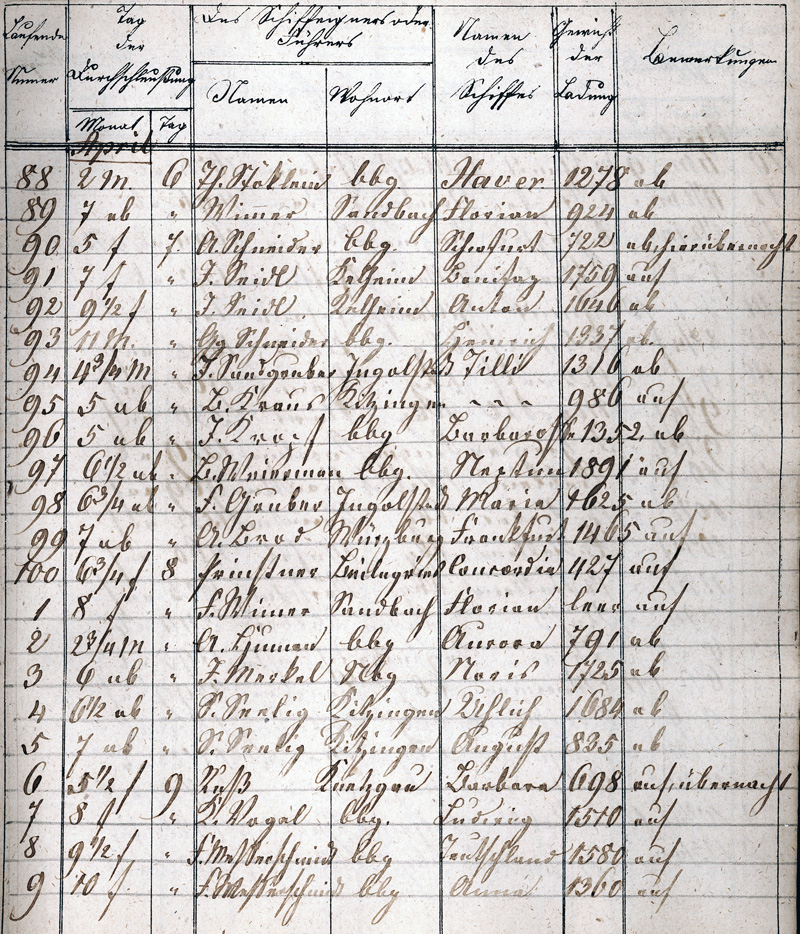 Laufende Numer | Tag der Durchschleußung | Des Schiffeigners oder Führers | Namen des Schiffes | Gewicht der Ladung | Bemerkungen
Monat | Tag | Namen | Wohnort
April
88 2 M. 6 Th. Stöklein bbg. Xaver 1278 ab
89 7 ab " Wimmer Sandbach Florian 924 ab
90 5 f 7 A. Schneider bbg. 722 ab, hier übernacht
91 7 f " J. Seidl Kelheim Bonifaz 1759 auf
92 9 1/2 f " J. Seidl Kelheim Anton 1646 ab
93 11 M. " Gg Schneider bbg. Heinrich 1337 ab.
94 4 3/4 M " J. Sandgruber Ingolstadt Tilli 1316 ab
95 5 ab " B. Kraus Kitzingen - - - 986 auf
96 5 ab " J. bbg Barbarossa 1352 ab
97 6 1/2 ab " B. Weierman bbg. Neptun 1891 auf
98 6 3/4 ab " F. Gruber Ingolstadt Maria 1625 ab
99 7 ab " A. Brod Würzburg Frankfurt 1465 auf
100 6 3/4 f 8 Prinstner Beilngries Concordia 427 auf
1 8 f " F. Wimer Sandbach Florian leer auf
2 2 3/4 M " A. bbg Aurora 791 ab
3 6 ab " J. Merkel Nbg Noris 1725 ab
4 6 1/2 ab " S. Seelig Kitzingen 1684 ab
5 7 ab " S. Seelig Kitzingen August 835 ab
6 5 1/2 f 9 Ruß Knetzgau Barbara 698 auf, übernacht
7 8 f " K. Vogel bbg. Ludwig 1510 auf
8 9 1/2 f " F. Messerschmidt bbg Teutschland 1580 auf
9 10 f " F. Messerschmidt bbg Anna 1360 auf